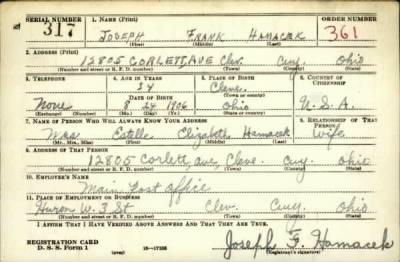 SERIAL NUMBER 1. NAME (Print) ORDER NUMBER
317 JOSEPH FRANK HAMACEK 361
(First) (Middle) (Last)
2. ADDRESS (Print)
12805 CORLETT AVE Clev. Cuy. Ohio
(Number and street or R. F. D. number) (Town) (County) (State)
3. TELEPHONE 4. AGE IN YEARS 5. PLACE OF BIRTH 6. COUNTRY OF CITIZENSHIP
34 Cleve.
DATE OF BIRTH (Town or county)
None 8 24 1906 Ohio U.S.A.
(Exchange) (Number) (Mo.) (Day) (Yr.) (State or country)
7. NAME OF PERSON WHO WILL ALWAYS KNOW YOUR ADDRESS 8. RELATIONSHIP OF THAT PERSON
Mrs Estelle Elizabeth Hamacek Wife
(Mr., Mrs., Miss) (First) (Middle) (Last)
9. ADDRESS OF THAT PERSON
12805 Corlett ave, Cleve. Cuy. Ohio
(Number and street or R. F. D. number) (Town) (County) (State)
10. EMPLOYER'S NAME
Main Post Office
11. PLACE OF EMPLOYMENT OR BUSINESS
Huron W. 3 St Clev. Cuy. Ohio
(Number and street or R. F. D. number) (Town) (County) (State)
I AFFIRM THAT I HAVE VERIFIED ABOVE ANSWERS AND THAT THEY ARE TRUE.
REGISTRATION CARD Joseph F. Hamacek
D. S. S. Form 1 (over) 16—17105 (Registrant's signature)